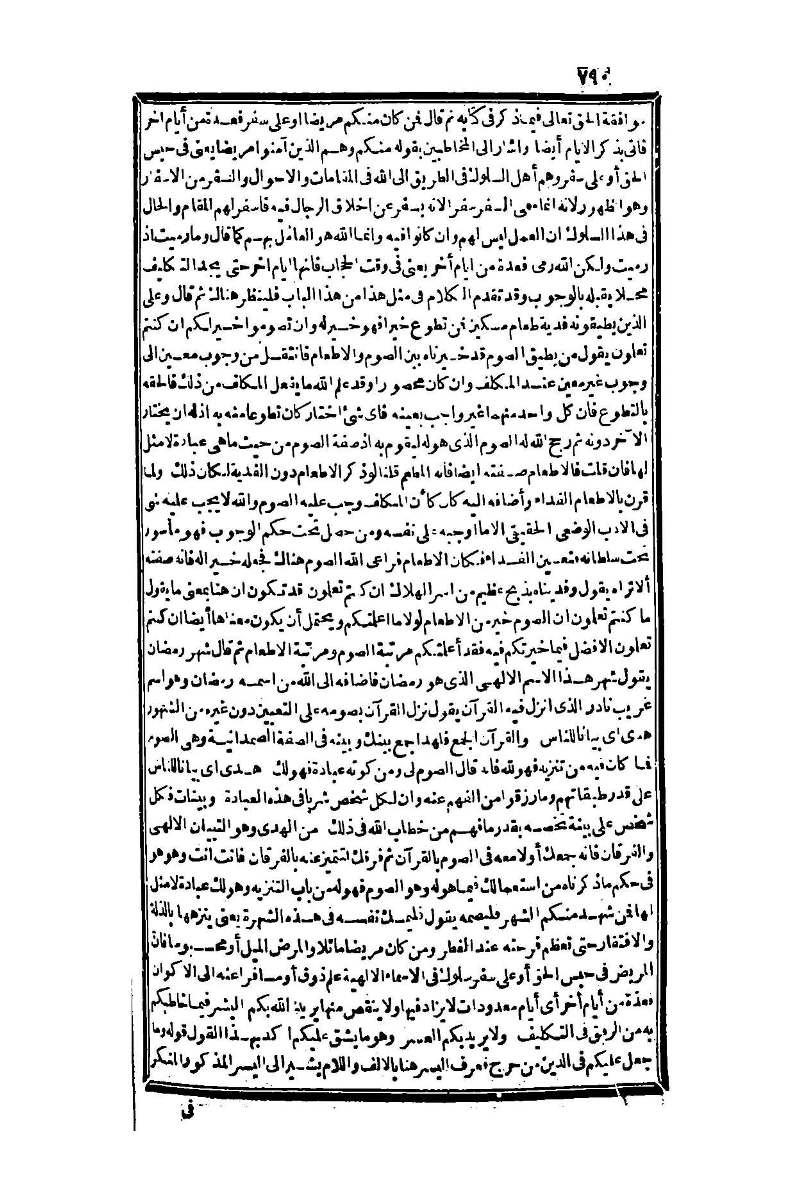 ٧٩٠
موافقة الحق تعالى فيما ذكر فى كتابه ثم قال فمن كان منكم مريضا أو على سفر فعدة من أيام أخر
فأتى بذكر الايام أيضا وأشار الى المخاطبين بقوله منكم وهم الذين آمنوا مريضا يعنى فى حبس
الحق أو على سفر وهم أهل السلوك فى الطريق الى الله فى المقامات والاحوال والسفر من الاسفار
وهو الظهور لانه انما سمى السفر سفر الانه يسفر عن اخلاق الرجال فيه فأسفر لهم المقام والحال
فى هذا السلوك ان العمل ليس لهم وان كانوا فيه وانما الله هو العامل بهم كما قال وما رميت اذ
رميت ولكن الله رمى فعدة من ايام أخر يعنى فى وقت الحجاب فانها ايام اخر حتى يجد التكليف
محلا يقبله بالوجوب وقد تقدم الكلام فى مثل هذا من هذا الباب فلينظر هنالك ثم قال وعلى
الذين يطيقونه فدية طعام مسكين فمن تطوع خيرا فهو خير له وان تصوموا خير لكم ان كنتم
تعلون يقول من يطيق الصوم قد خيرناه بين الصوم والاطعام فانتقل من وجوب معين الى
وجوب غير معين عند المكلف وان كان محصورا وقد علم الله ما يفعل المكلف من ذلك فالحقه
بالتطوع فان كل واحد منهما غير واجب بعينه فاى شئ اختار كان تطوعا منه به اذ له ان يختار
الآخر دونه ثم رجح الله له الصوم الذى هو له ليقوم به اذ صفة الصوم من حيث ما هى عبادة لا مثل
لها فان قلت فالاطعام صفته ايضا فانه المطعم قلنا لو ذكر الاطعام دون الفدية لكان ذلك ولما
قرن بالاطعام الفداء وأضافه اليه كان كأن المكلف وجب عليه الصوم والله لا يجب عليه شئ
فى الادب الوضعى الحقيقى الاما اوجبه على نفسه ومن حصل تحت حكم الوجوب فهو مأسور
تحت سلطانه فتعين الفداء فكان الاطعام فراعى الله الصوم هناك فجعله خير اله فانه صفته
ألا تراه يقول وفديناه بذبح عظيم من اسر الهلاك ان كنتم تعلون قد تكون ان هنا بمعنى ما يقول
ما كنتم تعلون ان الصوم خير من الاطعام لولا ما اعلمتكم ويحتمل أن يكون معناها أيضا ان كنتم
تعلون الافضل فيما خيرتكم فيه فقد أعلمتكم مرتبة الصوم ومرتبة الاطعام ثم قال شهر رمضان
يقول شهر هذا الاسم الالهى الذى هو رمضان فاضافه الى الله من اسمه رمضان وهو اسم
غريب نادر الذى انزل فيه القرآن يقول نزل القرآن بصومه على التعيين دون غيره من الشهور
هدى اى بيانا للناس والقرآن الجمع فلهذا جمع بينك وبينه فى الصفة الصمدانية وهى الصوم
فما كان فيه من تنزيه فهو لله فانه قال الصوم لى ومن كونه عبادة فهو لك هدى اى بيانا للناس
على قدر طبقاتهم وما رزقوا من الفهم عنه وان لكل شخص شربا فى هذه العبادة وبينات فكل
شخص على بينة تخصه بقدر ما فهم من خطاب الله فى ذلك من الهدى وهو التبيان الالهى
والفرقان فانه جمعك أولا معه فى الصوم بالقرآن ثم فرقك لتتميز عنه بالفرقان فانت أنت وهو هو
فى حكم ما ذكرناه من استعمالك فيما هو له وهو الصوم فهو له من باب التنزيه وهو لك عبادة لا مثل
لها فمن شهد منكم الشهر فليصمه يقول فليمسك نفسه فى هذه الشهرة يعنى ينزهها بالذلة
والافتقار حتى تعظم فرحته عند الفطر ومن كان مريضا مائلا والمرض الميل أو محبوسا فان
المريض فى حبس الحق أو على سفر سلوك فى الاسماء الالهية علم ذوق أو مسافرا عنه الى الاكوان
فعدة من أيام أخر أى أيام معدودات لا يزاد فيها ولا ينقص منها يريد الله بكم اليسر فيما خاطبكم
به من الرفق فى التكليف ولا يريد بكم العسر وهو ما يشق عليكم اكد بهذا القول قوله وما
جعل عليكم فى الدين من حرج فعرف اليسر هنا بالالف واللام يشير الى اليسر المذكور المنكر
فى